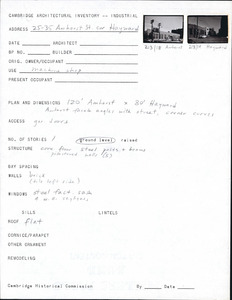 CAMBRIDGE ARCHITECTURAL INVENTORY -- INDUSTRIAL
ADDRESS 25-35 Amherst St cor Hayward
DATE ARCHITECT
BP NO. BUILDER
ORIG. OWNER/OCCUPANT
USE machine shop
PRESENT OCCUPANT
PLAN AND DIMENSIONS 120' Amherst x 80' Hayward
Amherst facade angles with street, corner
ACCESS
NO. OF STORIES 1 ground level raised
STRUCTURE steel
BAY SPACING
WALLS brick
WINDOWS steel fact. sash
SILLS LINTELS
ROOF flat
CORNICE/PARAPET
OTHER ORNAMENT
REMODELING
Cambridge Historical Commission By Date